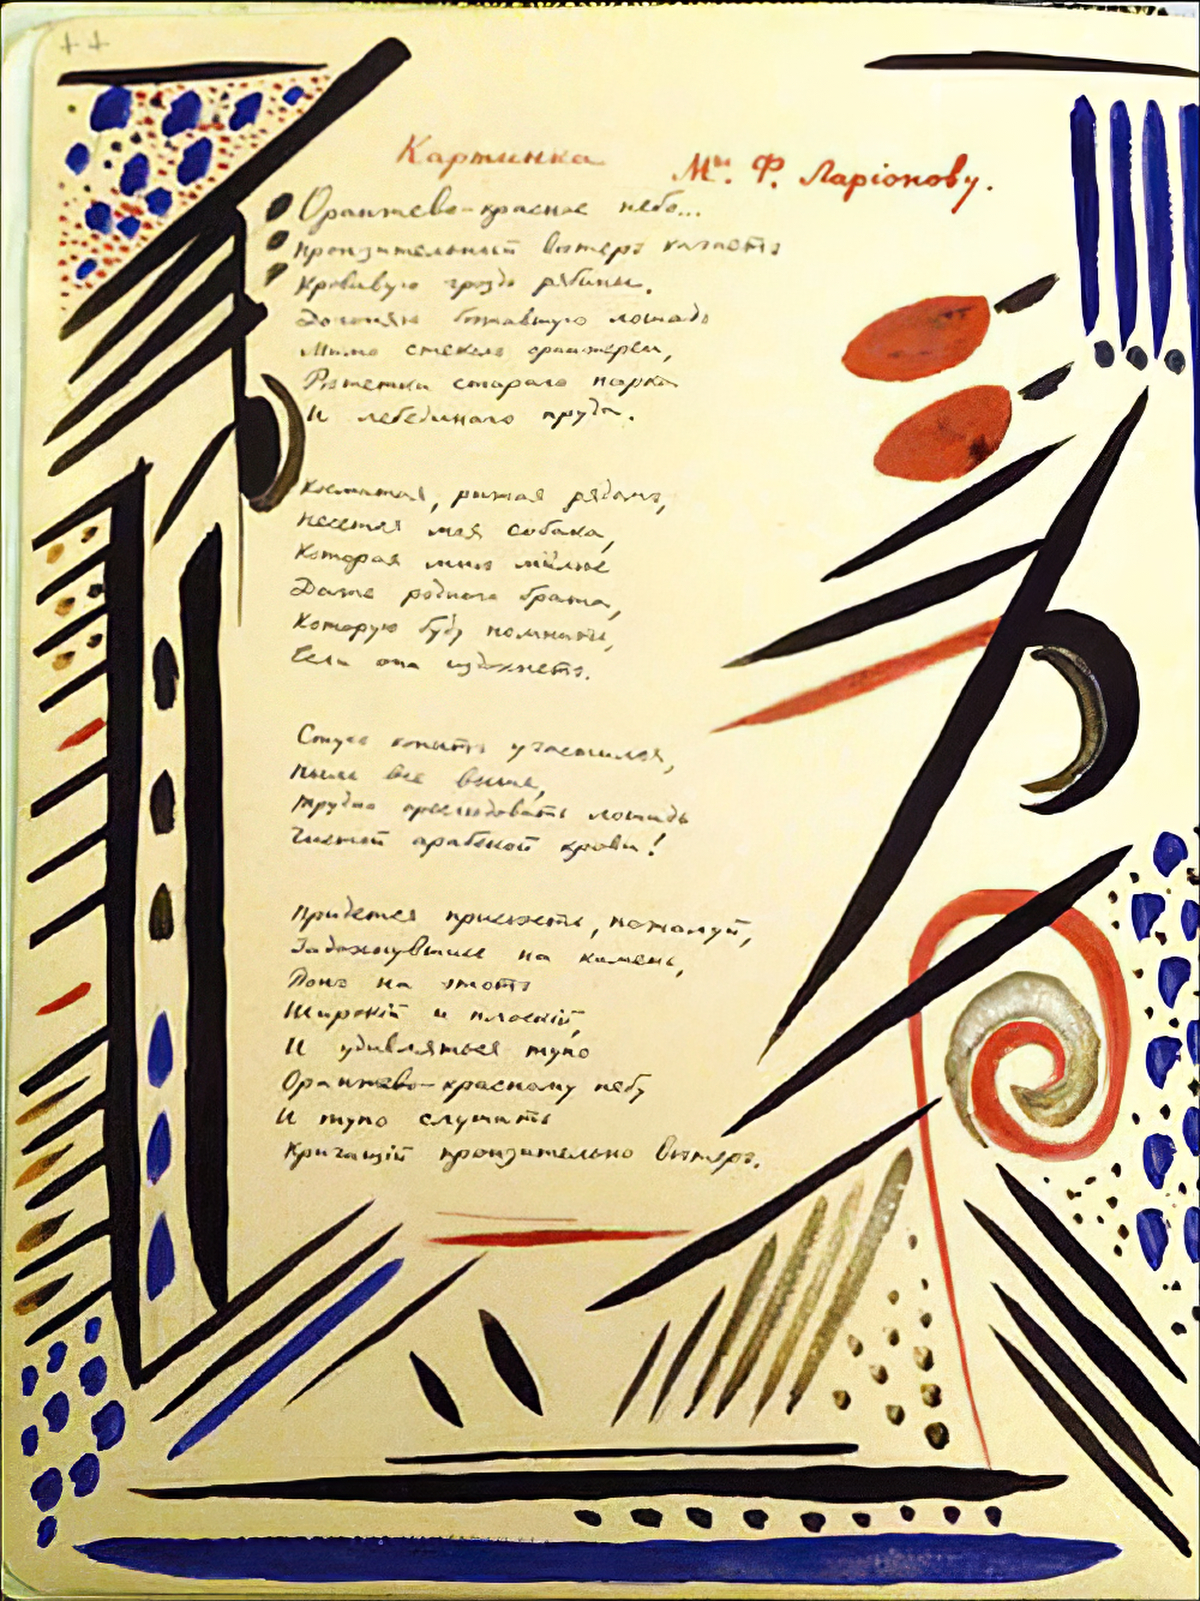 ++
Картинка
М-лъ. Ф. Ларіонову.
Оранжево-красное небо...
Пронзительный вѣтеръ качаетъ
Кровавую гроздь рябины.
Догоняю бѣжавшую лошадь
Мимо стеколъ оранжереи,
Рѣшетки стараго парка
И лебединаго пруда.
Косматая, рыжая рядомъ,
Несется моя собака,
Которая мнѣ милѣе
Даже родного брата,
Которую буду помнить,
Если она издохнетъ.
Стукъ копытъ участился,
Пыль все выше,
Трудно преслѣдовать лошадь
Чистой арабской крови!
Придется присѣсть, пожалуй,
Задохнувшись на камень,
Донъ на этотъ
Широкій и плоскій,
И удивляться тупо
Оранжево-красному небу
И тупо слушать
Кричащій пронзительно вѣтеръ.